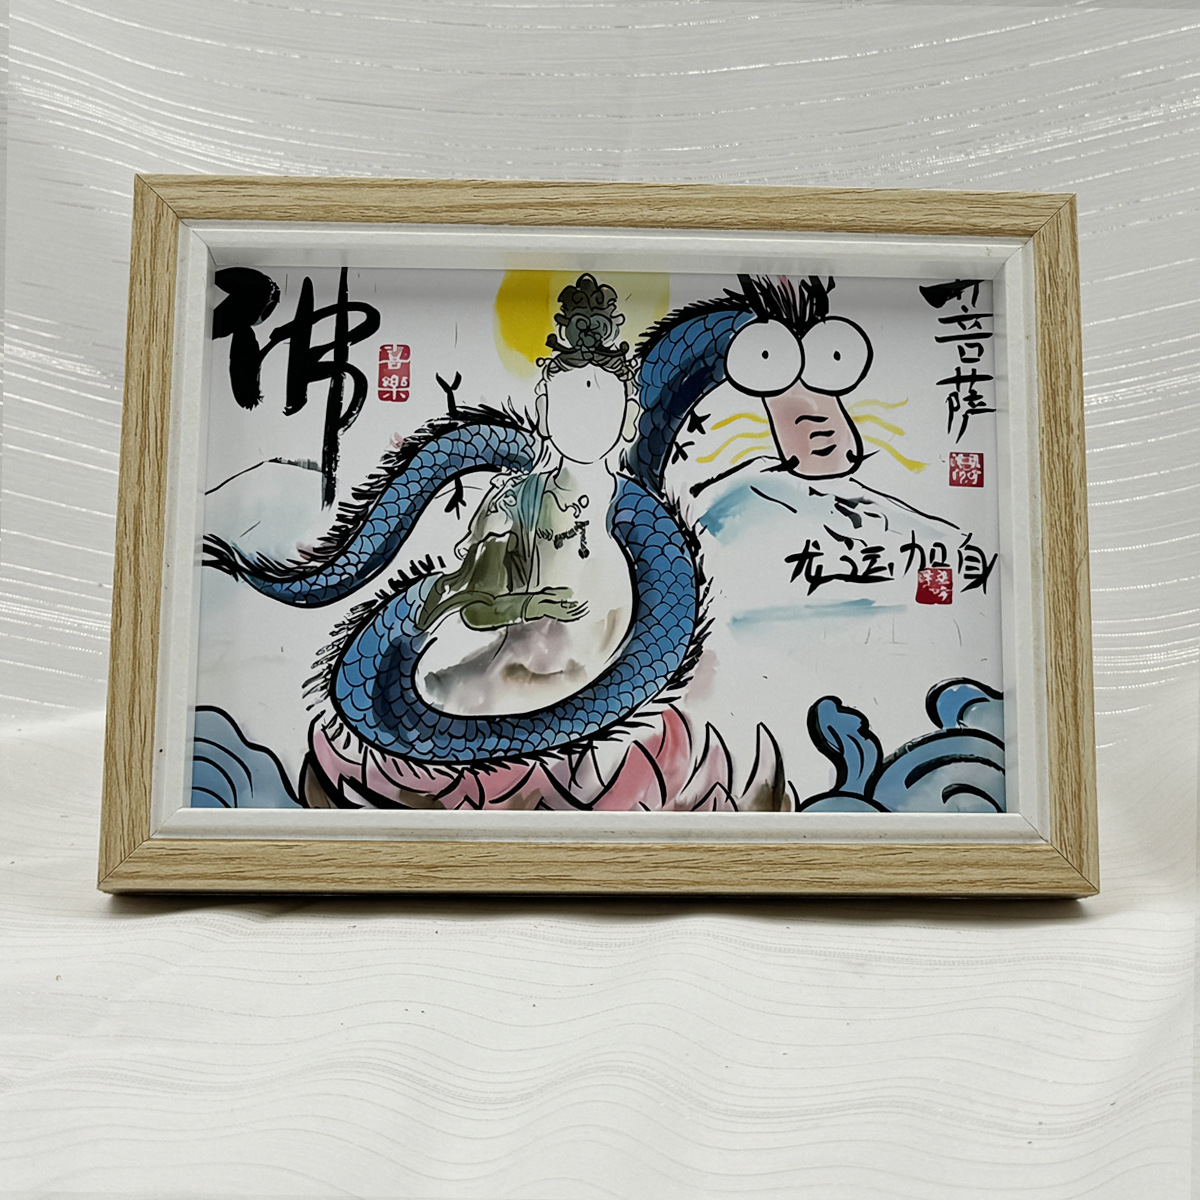 佛
喜樂
菩萨
龙运加身